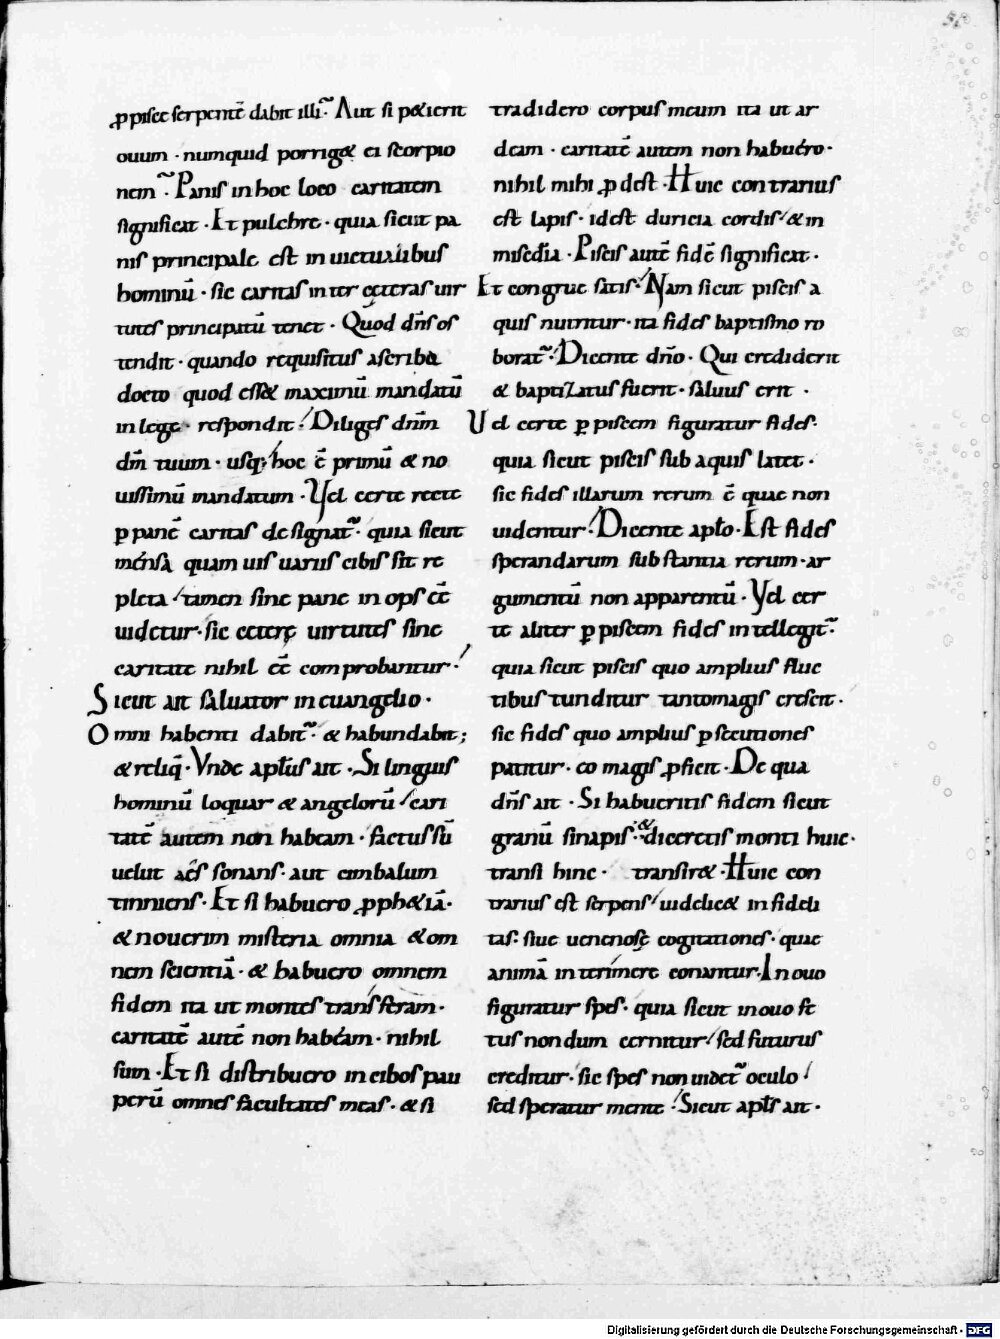 58
p pisce serpentē dabit illi. Aut si p&ierit
ouum · numquid porrig& ei scorpio
nem. Panis in hoc loco caritatem
significat · Et pulchre · quia sicut pa
nis principale est in uictualibus
hominū · sic caritas inter ceteras uir
tutes principatū tenet · Quod dn̄s os
tendit · quando requisitus a scriba
docto quod ess& maximū mandatū
in lege · respondit · Diliges dn̄m
dm̄ tuum · usq; hoc ē primū & no
uissimū mandatum · Vel certe recte
p panē caritas designat̄ · quia sicut
mensa quam uis uariis cibis sit re
pleta tamen sine pane inops eē
uidetur · sic ceterę uirtutes sine
caritate nihil eē comprobantur ·
Sicut ait saluator in euangelio ·
Omni habenti dabit̄ · & habundabit;
& reliq̄ · Vnde apl̄us ait · Si linguis
hominū loquar & angelorū cari
tatē autem non habeam · factus sū
uelut aes sonans · aut cimbalum
tinniens · Et si habuero pph&iā ·
& nouerim misteria omnia & om
nem scientiā · & habuero omnem
fidem ita ut montes transferam ·
caritatē autē non habeam · nihil
sum · Et si distribuero in cibos pau
perū omnes facultates meas · & si
tradidero corpus meum ita ut ar
deam · caritatē autem non habuero ·
nihil mihi pdest · Huic contrarius
est lapis · idest duricia cordis & in
misedia · Piscis autē fidē significat ·
Et congrue satis · Nam sicut piscis a
quis nutritur · ita fides baptismo ro
borat̄ · Dicente dn̄o · Qui crediderit
& baptizatus fuerit · saluus erit ·
Vel certe p piscem figuratur fides ·
quia sicut piscis sub aquis latet ·
sic fides illarum rerum ē quae non
uidentur · Dicente aplo · Est fides
sperandarum substantia rerum · ar
gumentū non apparentū · Vel cer
te aliter p piscem fides intellegit̄ ·
quia sicut piscis quo amplius fluc
tibus tunditur tantomagis crescit ·
sic fides quo amplius psecutiones
patitur · eo magis pficit · De qua
dn̄s ait · Si habueritis fidem sicut
granū sinapis · & diceretis monti huic ·
transi hinc · transir& · Huic con
trarius est serpens uidelic& infideli
tas · siue uenenosę cogitationes · quae
animā interimere conantur · In ouo
figuratur spes · quia sicut in ouo fe
tus nondum cernitur sed futurus
creditur · sic spes non uidet̄ oculo
sed speratur mente · Sicut apl̄s ait ·
Digitalisierung gefördert durch die Deutsche Forschungsgemeinschaft - DFG